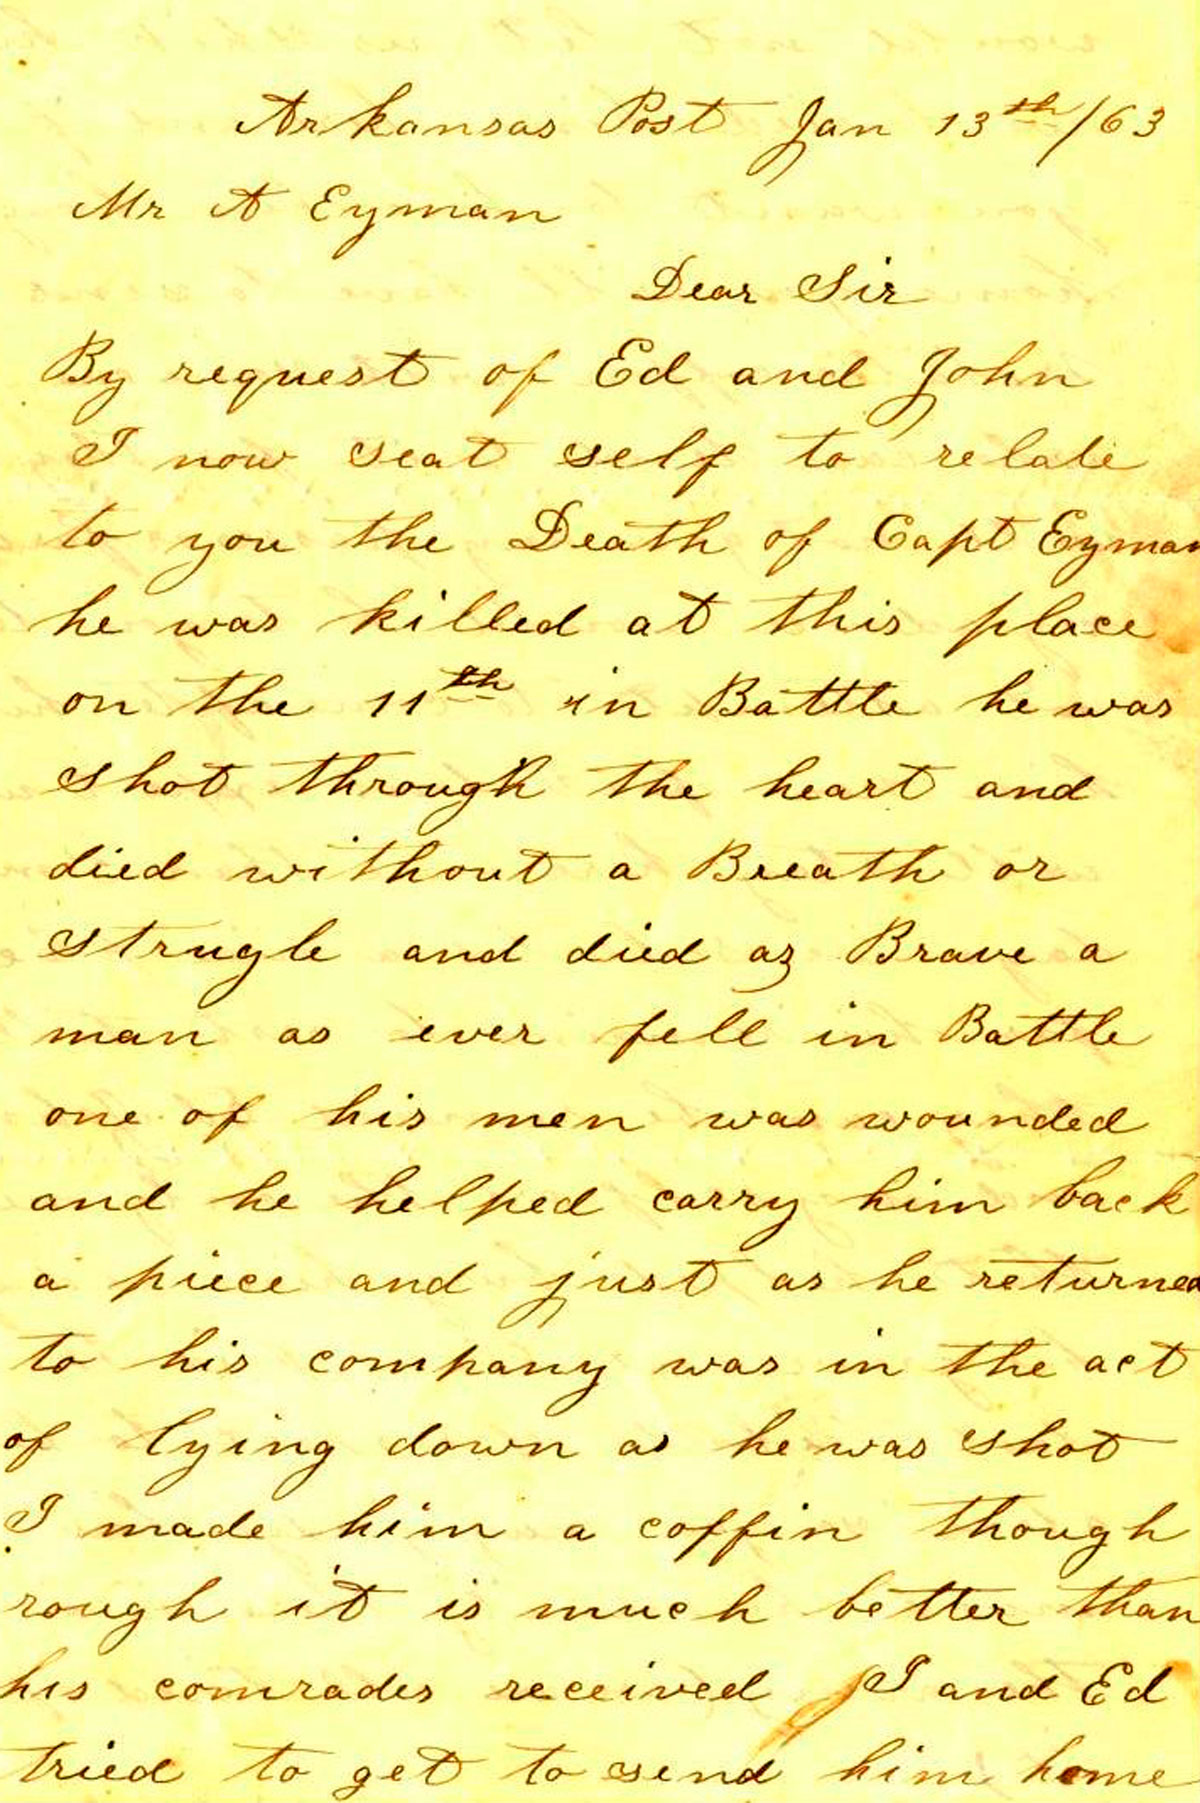 Arkansas Post Jan 13th/63
Mr A Eyman
Dear Sir
By request of Ed and John
I now seat self to relate
to you the Death of Capt Eyman
he was killed at this place
on the 11th in Battle he was
shot through the heart and
died without a Breath or
strugle and died as Brave a
man as ever fell in Battle
one of his men was wounded
and he helped carry him back
a piece and just as he returned
to his company was in the act
of lying down as he was shot
I made him a coffin though
rough it is much better than
his comrades received I and Ed
tried to get to send him home